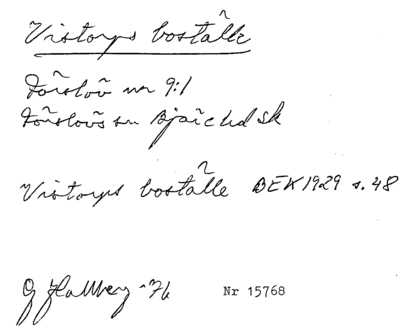 Vistorps boställe
Förslöv nr 9:1
Förslövs sn Bjäre hd Sk
Vistorps boställe BEK 1929 s. 48
G Hallberg -76 Nr 15768